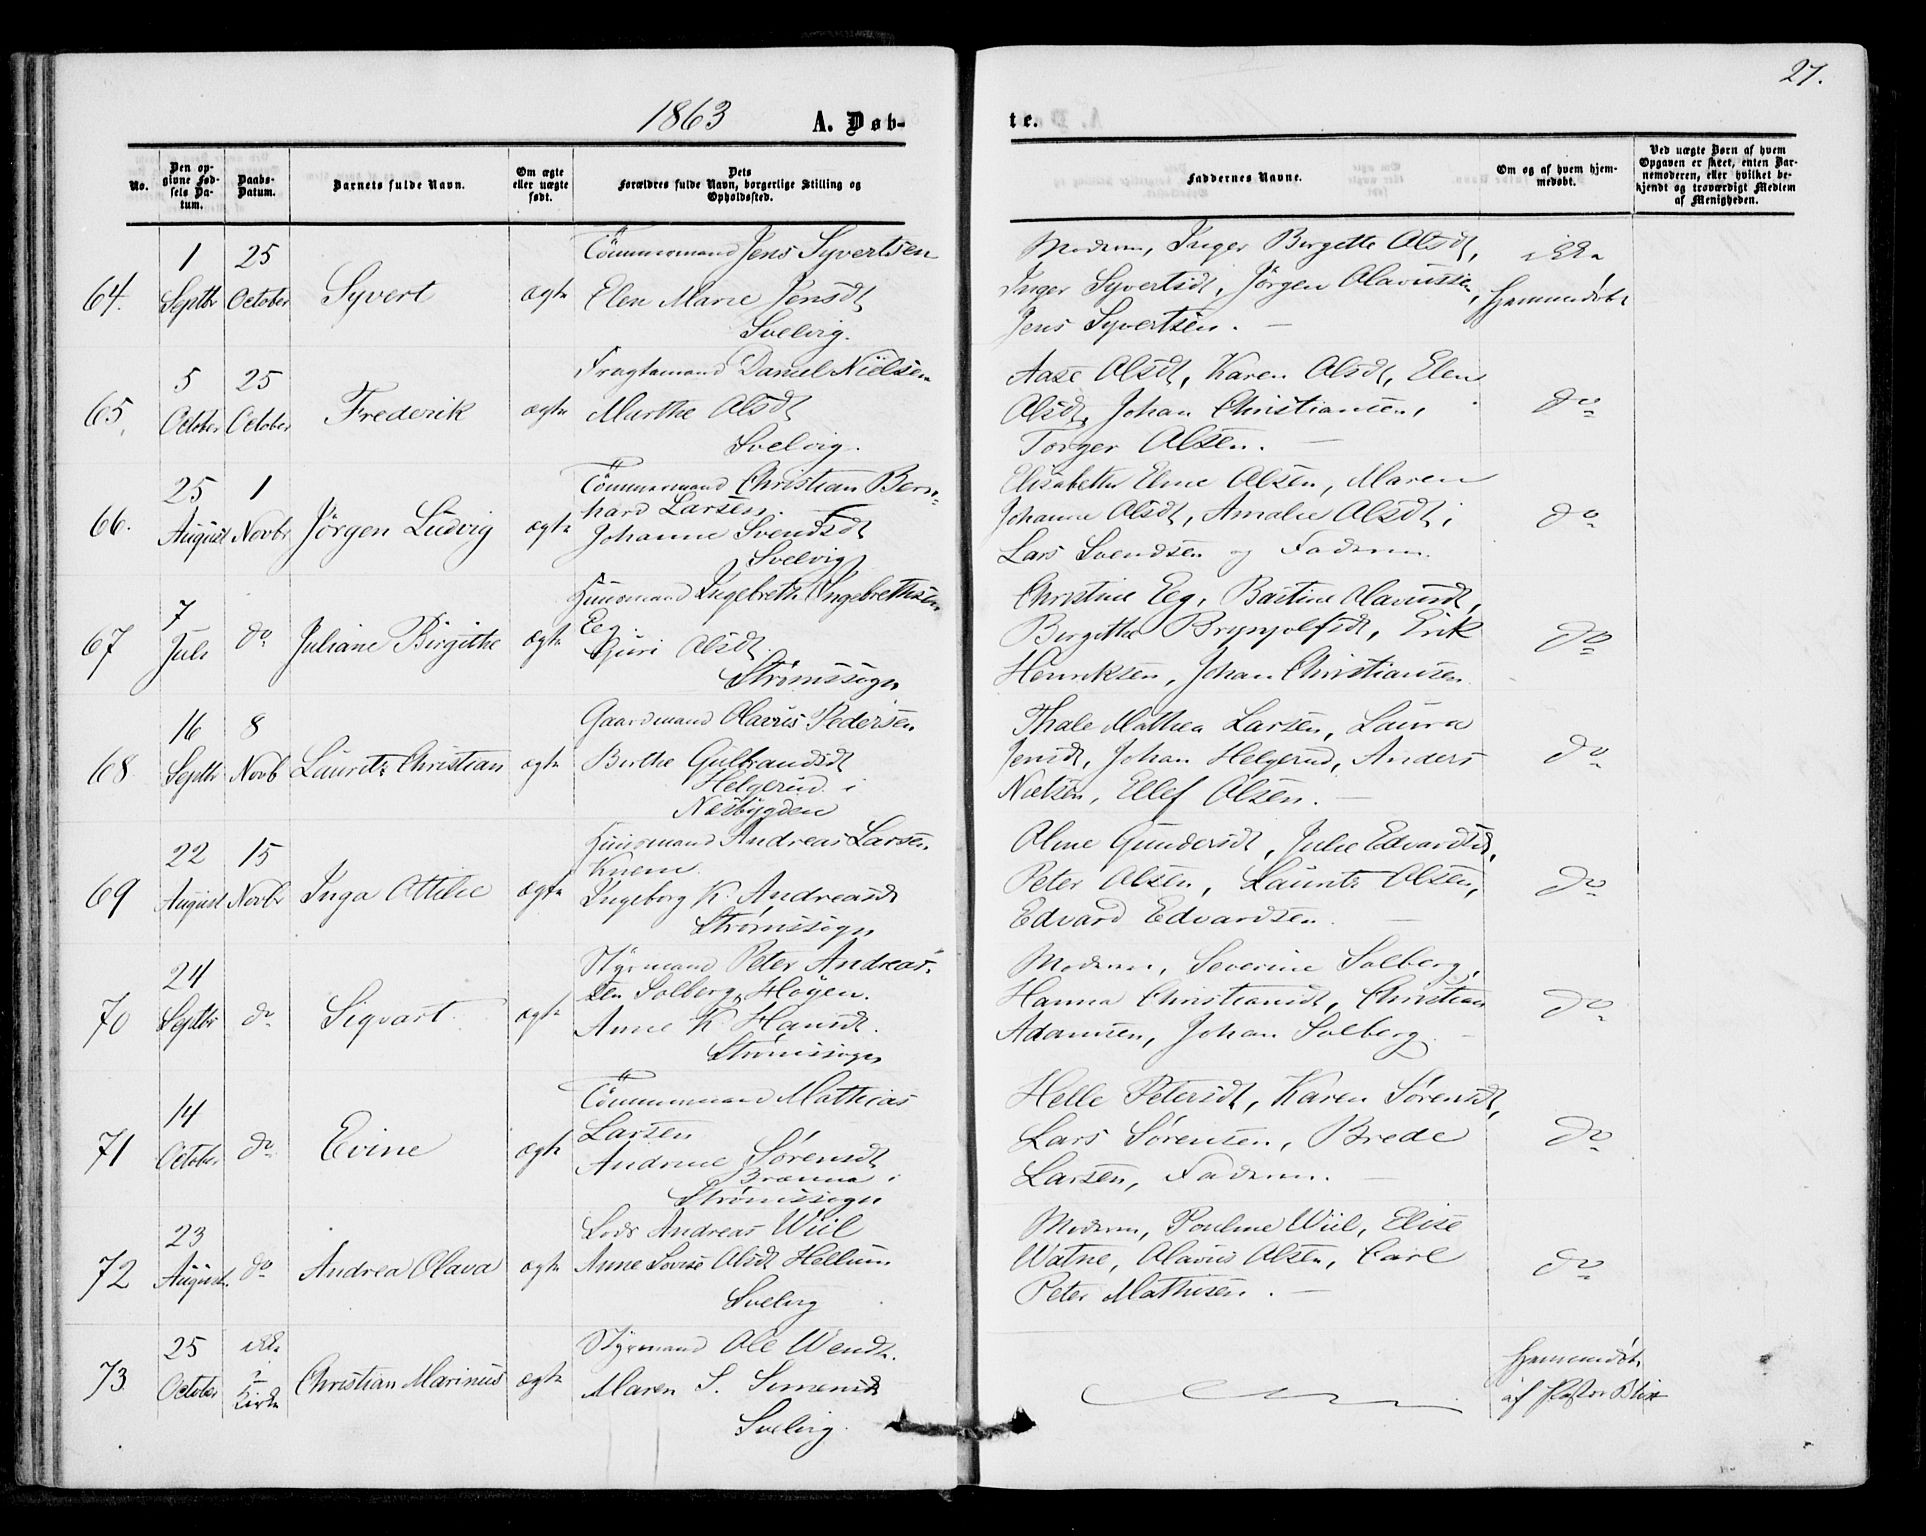 27.
1863 A. Døb- te.
No.
Den op-
givne Fød-
sels Da-
tum.
Daabs-
Datum.
Barnets fulde Navn.
Om ægte
eller uægte
født.
Dets
Forældres fulde Navn, borgerlige Stilling og
Opholdssted.
Faddernes Navne.
Om og af hvem hjem-
medøbt.
Ved uægte Børn af hvem
Opgaven er skeet, enten Bar-
nemoderen, eller hvilket be-
kjendt og troværdigt Medlem
af Menigheden.
64.
1
Septbr
25
October
Syvert
ægte
Tömmermand Jens Syvertsen
Elen Marie Jensdt
Svelvig.
Moderen, Inger Birgitte Olsdt,
Inger Syvertsdt, Jörgen Olavussen,
Jens Syvertsen. —
ikke
Hjemmedøbt
65.
5
October
25
October
Frederik
ægte
Fragtemand Daniel Nielsen
Marthe Olsdt
Svelvig.
Aase Olsdt, Karen Olsdt, Elen
Olsdt, Johan Christiansen,
Torger Olsen. —
do
66.
25
August
1
Novbr
Jörgen Ludvig
ægte
Tömmermand Christian Bern-
hard Larsen.
Johanne Svendsdt
Svelvig
Elisabeth Eline Olsen, Maren
Johanne Olsdt, Amalie Olsdt,
Lars Svendsen og Faderen.
do
67
7
Juli
do
Juliane Birgithe
ægte
Huusmand Ingebreth Ingebrethsen
Eeg.
Sjuri Olsdt.
Strømssogn
Christine Eeg, Bartine Olavusdt,
Birgithe Brynjolfsdt, Erik
Henriksen, Johan Christiansen.
do
68
16
Septbr
8
Novb
Lauritz Christian
ægte
Gaardmand Olavus Pedersen
Berthe Gulbrandsdt
Helgerud i
Nesbygden
Thale Mathea Larsen, Laura
Jensdt, Johan Helgerud, Anders
Nielsen, Ellef Olsen. —
do
69
22
August
15
Novbr
Inga Ottilie
ægte
Huusmand Andreas Larsen
Knem
Ingeborg K. Andreasdt
Strømssogn
Oline Gundersdt, Julie Edvardsdt,
Peter Olsen, Lauritz Olsen,
Edvard Edvardsen. —
do
70
24
Septbr
do
Sigvart
ægte
Styrmand Peter Andreas-
sen Solberg, Høyen.
Anne K. Hansdt.
Strømssogn
Moderen, Severine Solberg,
Hanna Christiansdt, Christian
Adamsen, Johan Solberg. —
do
71
14
October
do
Evine
ægte
Tömmermand Mathias
Larsen
Andrine Sørensdt
Brænna i
Strømssogn
Helle Petersdt, Karen Sørensdt,
Lars Sørensen, Brede
Larsen, Faderen. —
do
72
23
August
do
Andrea Olava
ægte
Lods Andreas Wiil
Anne Lovise Olsdt Hellum
Svelvig
Moderen, Pouline Wiil, Elise
Watne, Olavus Olsen, Carl
Peter Mathisen. —
do
73
25
October
ikke
i
Kirke
Christian Marinus
ægte
Styrmand Ole Wendt.
Maren S. Simensdt
Svelvig.
Hjemmedøbt
af Pastor Blix